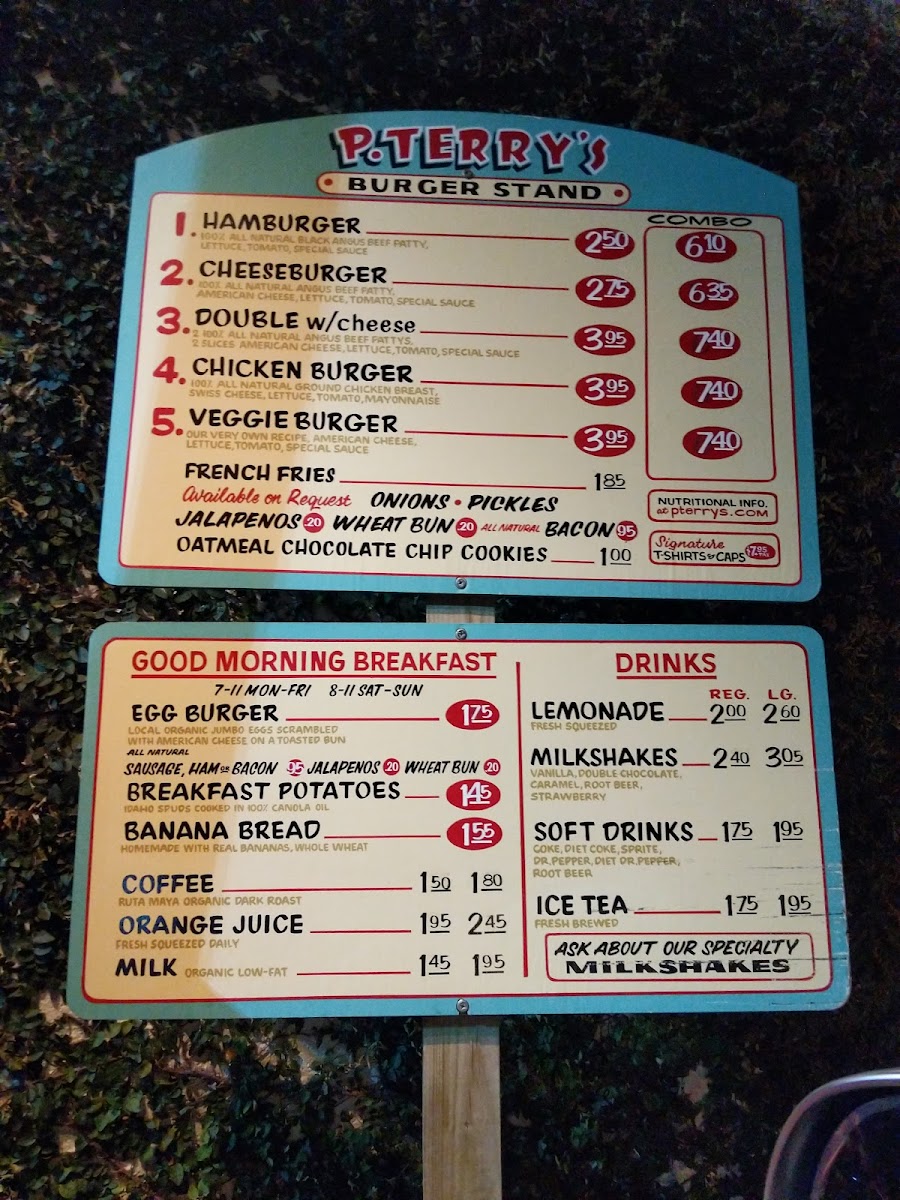 P. TERRY'S
BURGER STAND
COMBO
1. HAMBURGER 2.50 6.10
100% ALL NATURAL BLACK ANGUS BEEF PATTY,
LETTUCE, TOMATO, SPECIAL SAUCE
2. CHEESEBURGER 2.75 6.35
100% ALL NATURAL ANGUS BEEF PATTY,
AMERICAN CHEESE, LETTUCE, TOMATO, SPECIAL SAUCE
3. DOUBLE w/cheese 3.95 7.40
2 100% ALL NATURAL ANGUS BEEF PATTYS,
2 SLICES AMERICAN CHEESE, LETTUCE, TOMATO, SPECIAL SAUCE
4. CHICKEN BURGER 3.95 7.40
100% ALL NATURAL GROUND CHICKEN BREAST,
SWISS CHEESE, LETTUCE, TOMATO, MAYONNAISE
5. VEGGIE BURGER 3.95 7.40
OUR VERY OWN RECIPE, AMERICAN CHEESE,
LETTUCE, TOMATO, SPECIAL SAUCE
FRENCH FRIES 1.85
Available on Request ONIONS • PICKLES
JALAPENOS .20 WHEAT BUN .20 ALL NATURAL BACON .95
OATMEAL CHOCOLATE CHIP COOKIES 1.00
NUTRITIONAL INFO.
at pterrys.com
Signature
T-SHIRTS & CAPS $7.95
GOOD MORNING BREAKFAST
7-11 MON-FRI 8-11 SAT-SUN
EGG BURGER 1.75
LOCAL ORGANIC JUMBO EGGS SCRAMBLED
WITH AMERICAN CHEESE ON A TOASTED BUN
ALL NATURAL
SAUSAGE, HAM OR BACON .95 JALAPENOS .20 WHEAT BUN .20
BREAKFAST POTATOES 1.45
IDAHO SPUDS COOKED IN 100% CANOLA OIL
BANANA BREAD 1.55
HOMEMADE WITH REAL BANANAS, WHOLE WHEAT
COFFEE 1.50 1.80
RUTA MAYA ORGANIC DARK ROAST
ORANGE JUICE 1.95 2.45
FRESH SQUEEZED DAILY
MILK ORGANIC LOW-FAT 1.45 1.95
DRINKS
REG. LG.
LEMONADE 2.00 2.60
FRESH SQUEEZED
MILKSHAKES 2.40 3.05
VANILLA, DOUBLE CHOCOLATE,
CARAMEL, ROOT BEER,
STRAWBERRY
SOFT DRINKS 1.75 1.95
COKE, DIET COKE, SPRITE,
DR. PEPPER, DIET DR. PEPPER,
ROOT BEER
ICE TEA 1.75 1.95
FRESH BREWED
ASK ABOUT OUR SPECIALTY
MILKSHAKES